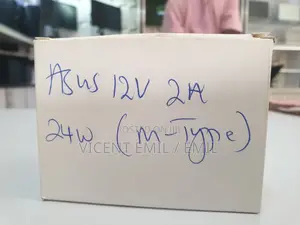 ASUS 12V 2A
24W (M-Type)
VICENT EMIL / EMIL